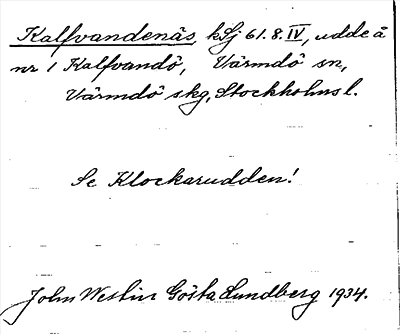 Kalfvandenäs, kSj 61.8.IV, udde å
nr 1 Kalfvandö, Värmdö sn,
Värmdö skg, Stockholms l.
Se Klockarudden!
John Westin Gösta Lundberg 1934.